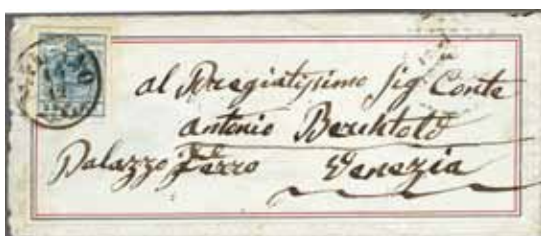 al Pregiatissimo Sig Conte
Antonio Berchtold
Palazzo Ferro Venezia